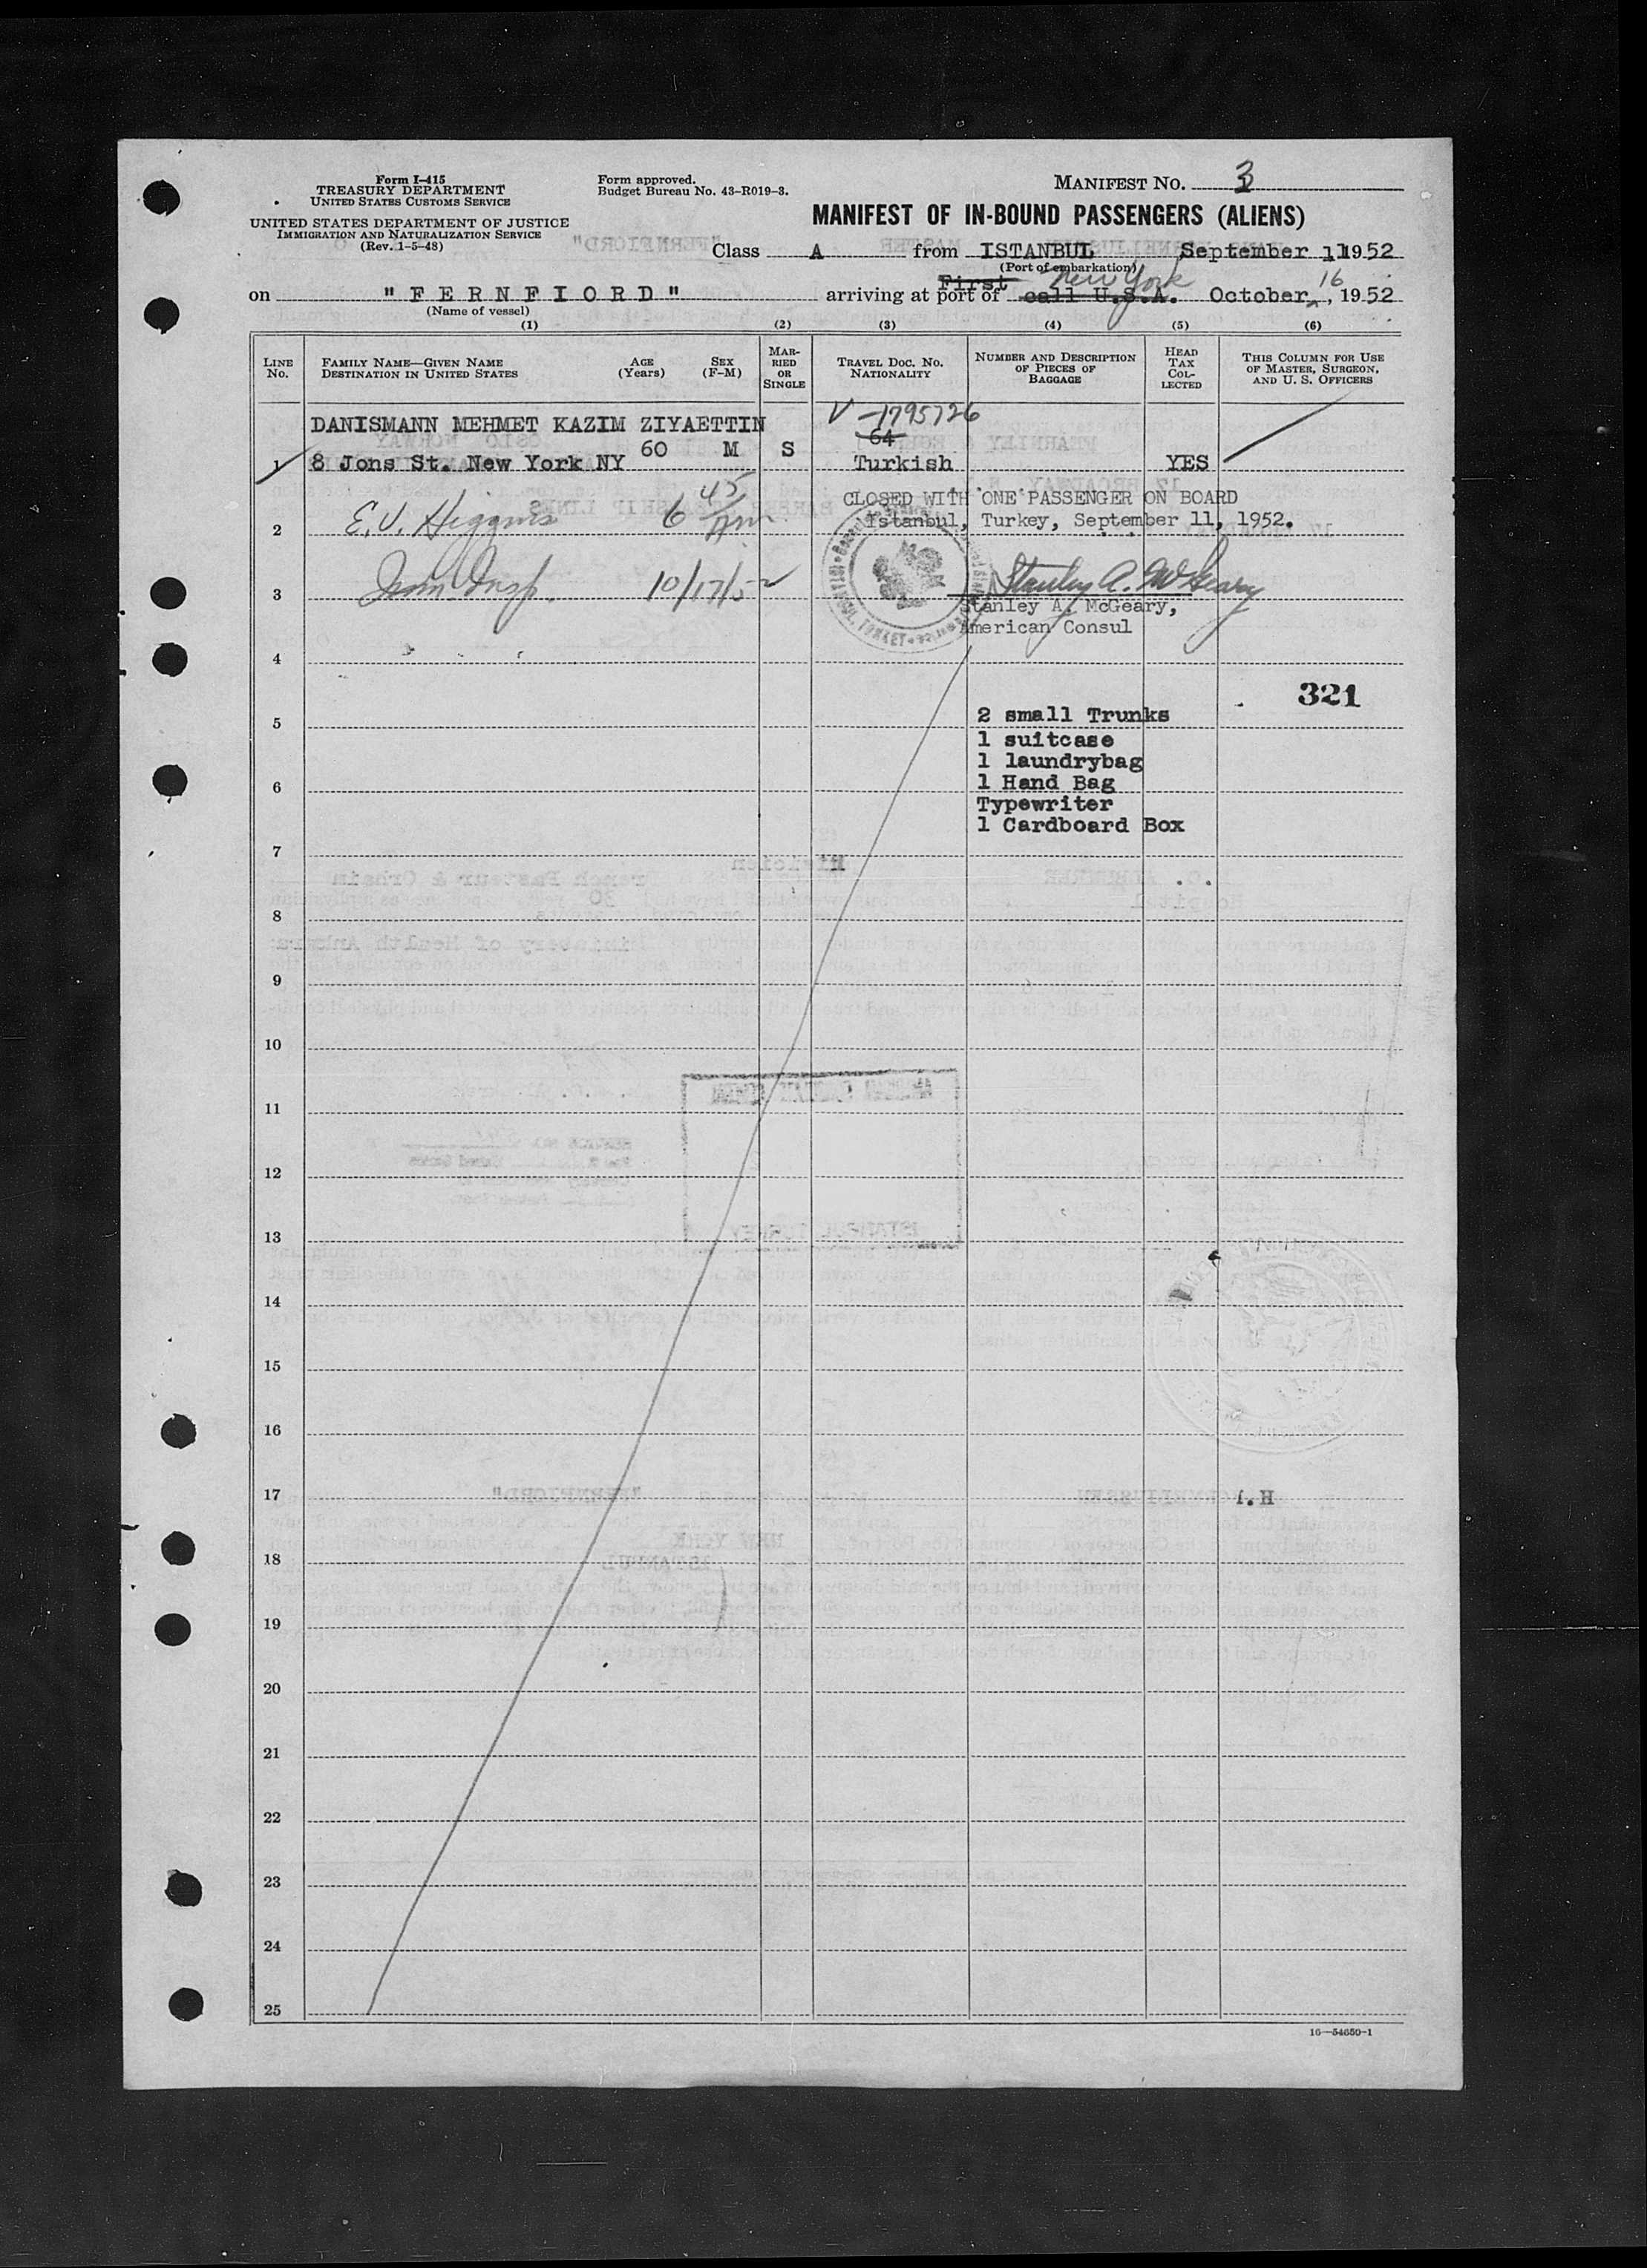 Form I-415
TREASURY DEPARTMENT
UNITED STATES CUSTOMS SERVICE
UNITED STATES DEPARTMENT OF JUSTICE
IMMIGRATION AND NATURALIZATION SERVICE
(Rev. 1-5-48)
Form approved.
Budget Bureau No. 43-R019-3.
MANIFEST NO. 3
MANIFEST OF IN-BOUND PASSENGERS (ALIENS)
Class A from ISTANBUL September 11 1952
(Port of embarkation)
on "FERNFIORD" arriving at port of First call U.S.A. New York October 16, 1952
(Name of vessel)
(1) (2) (3) (4) (5) (6)
LINE NO.
FAMILY NAME—GIVEN NAME
DESTINATION IN UNITED STATES
AGE (Years)
SEX (F-M)
MARRIED OR SINGLE
TRAVEL DOC. NO.
NATIONALITY
NUMBER AND DESCRIPTION OF PIECES OF BAGGAGE
HEAD TAX COLLECTED
THIS COLUMN FOR USE OF MASTER, SURGEON, AND U. S. OFFICERS
DANISMANN MEHMET KAZIM ZIYAETTIN V-1795726
64
1 8 Jons St. New York NY 60 M S Turkish YES
CLOSED WITH ONE PASSENGER ON BOARD
2 E.V. Higgins 6 45 AM Istanbul, Turkey, September 11, 1952.
3 Imm. Insp. 10/17/52 Stanley A. McGeary
Stanley A. McGeary,
American Consul
4
321
5 2 small Trunks
1 suitcase
1 laundrybag
6 1 Hand Bag
Typewriter
1 Cardboard Box
7
8
9
10
11
12
13
14
15
16
17
18
19
20
21
22
23
24
25
16—54650-1